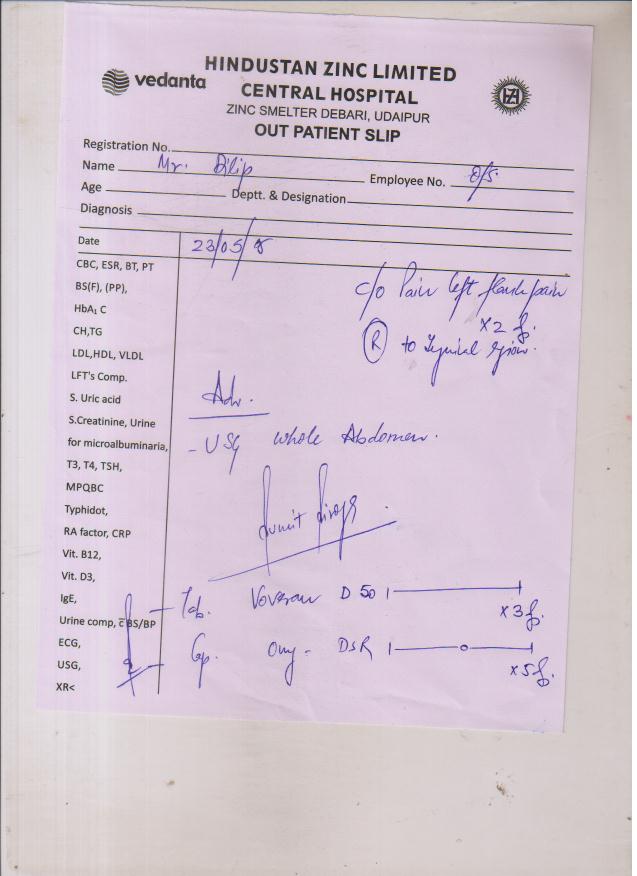 vedanta
HINDUSTAN ZINC LIMITED
CENTRAL HOSPITAL
ZINC SMELTER DEBARI, UDAIPUR
OUT PATIENT SLIP
Registration No.
Name Mr. Dilip Employee No. O/S.
Age Deptt. & Designation
Diagnosis
Date 23/05/
CBC, ESR, BT, PT
BS(F), (PP),
c/o Pain left flank pain
HbA₁ C
x2
CH,TG
(R) to
LDL,HDL, VLDL
LFT's Comp.
S. Uric acid
Adv.
S.Creatinine, Urine
- USG whole Abdomen.
for microalbuminaria,
T3, T4, TSH,
MPQBC
Typhidot,
RA factor, CRP
Vit. B12,
Vit. D3,
IgE,
- Tab. Voveran D 50 |———|
x3
Urine comp, c̄ BS/BP
ECG,
- Cap. Omy - DSR |———o———|
USG,
x5
XR<